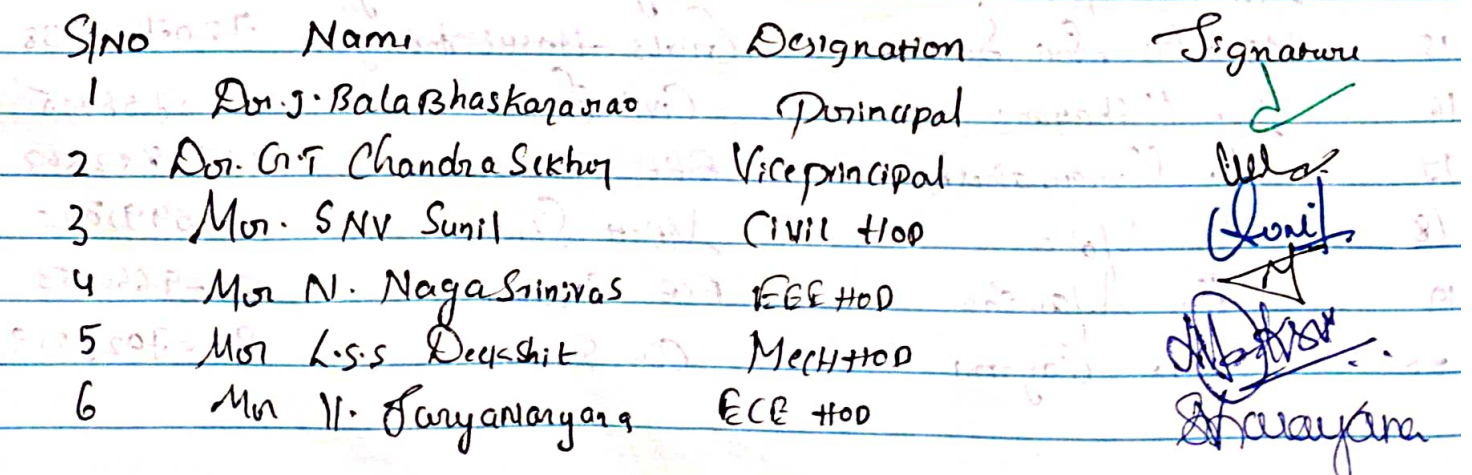 S/No Name Designation Signature
1 Dr. J. BalaBhaskararao Principal
2 Dr. G.T Chandra Sekhar Viceprincipal
3 Mr. SNV Sunil Civil HOD Sunil
4 Mr N. Naga Srinivas EEE HOD
5 Mr L.S.S Deekshit Mech HOD
6 Mr V. Suryanarayana ECE HOD